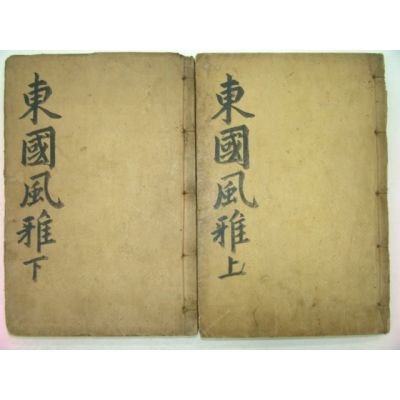 東國風雅上
東國風雅下